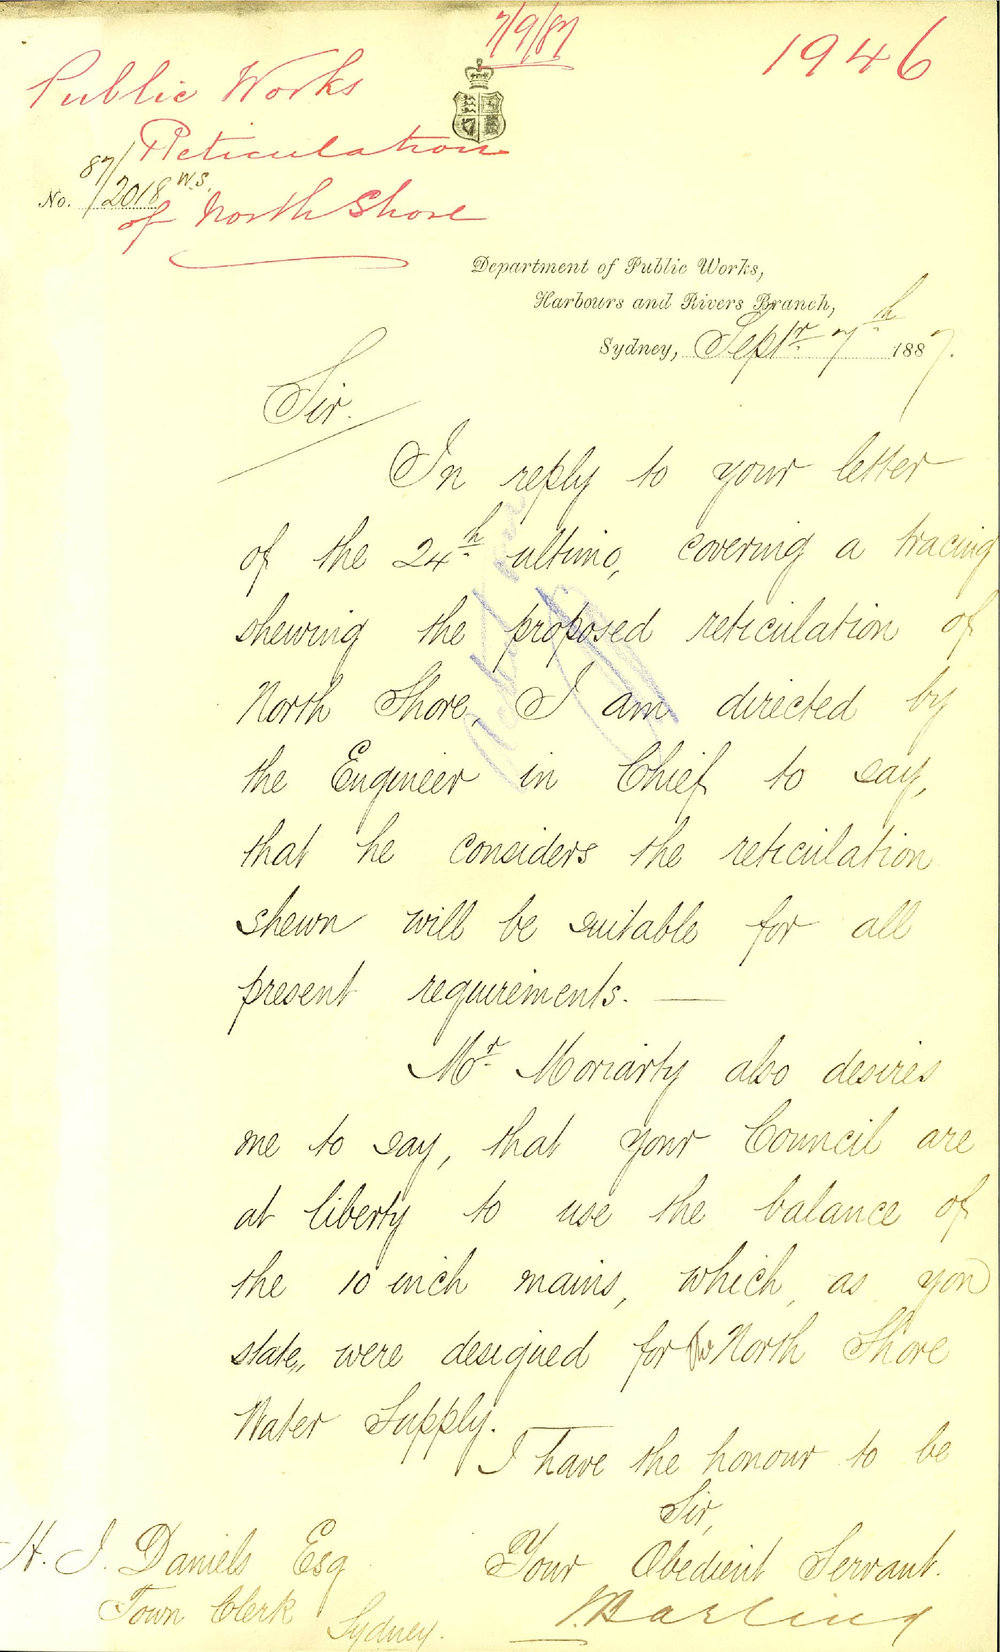 7/9/87
1946
Public Works
Reticulation
of North Shore
87/
No. /2018 W.S.
Department of Public Works,
Harbours and Rivers Branch,
Sydney, Septr 7th 1887.
Sir.
In reply to your letter
of the 24th ultimo, covering a tracing
shewing the proposed reticulation of
North Shore, I am directed by
the Engineer in Chief to say,
that he considers the reticulation
shewn will be suitable for all
present requirements. —
Mr Moriarty also desires
me to say, that your Council are
at liberty to use the balance of
the 10 inch mains, which, as you
state, were designed for North Shore
Water Supply.
I have the honour to be
Sir,
Your Obedient Servant.
H. J. Daniels Esq
Town Clerk
Sydney.